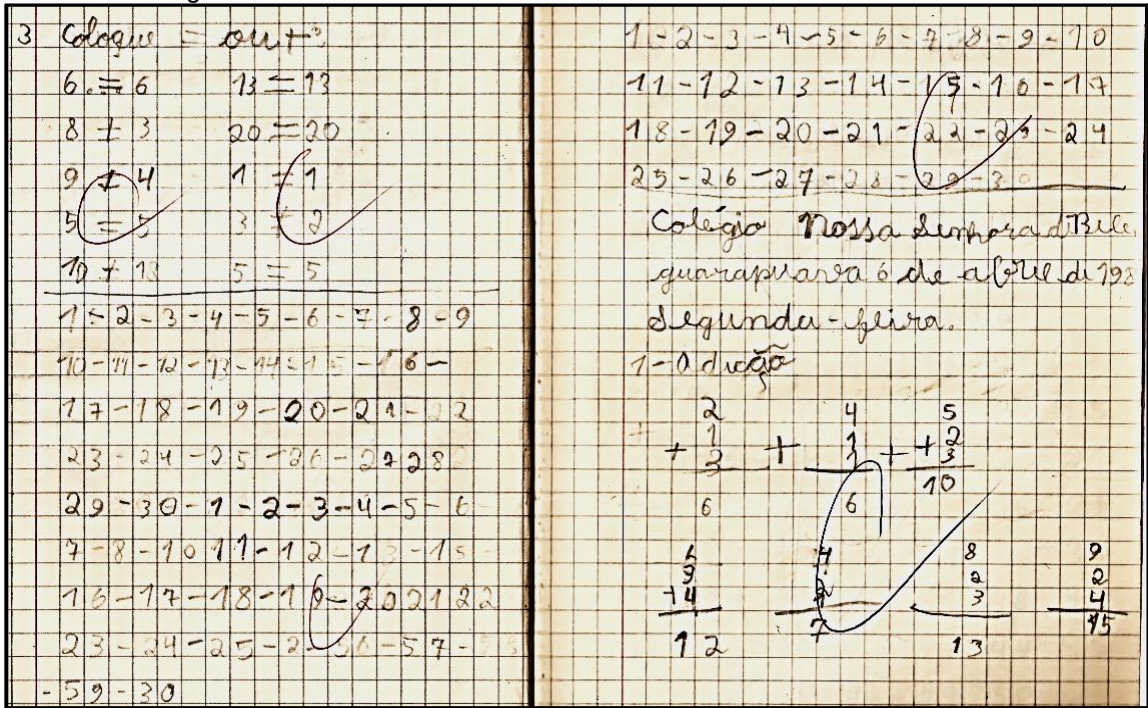 3 Coloque = ou ≠
6 = 6 13 = 13
8 ≠ 3 20 = 20
9 ≠ 4 1 = 1
5 = 5 3 ≠ 2
10 ≠ 13 5 = 5
1-2-3-4-5-6-7-8-9
10-11-12-13-14-15-16-
17-18-19-20-21-22
23-24-25-26-27 28
29-30-1-2-3-4-5-6
7-8-10 11-12-13-15-
16-17-18-19-20 21 22
23-24-25-2 -56-57-
-59-30
1-2-3-4-5-6-7-8-9-10
11-12-13-14-15-16-17
18-19-20-21-22-23-24
25-26-27-28-29-30
Colégio Nossa Senhora d Bele
guarapuava 6 de abril de 198
Segunda-feira.
1-Adição
2 4 5
+ 1 + 1 + 2
3 3
6 6 10
8 9
2 2
+4 3 4
12 7 13 15